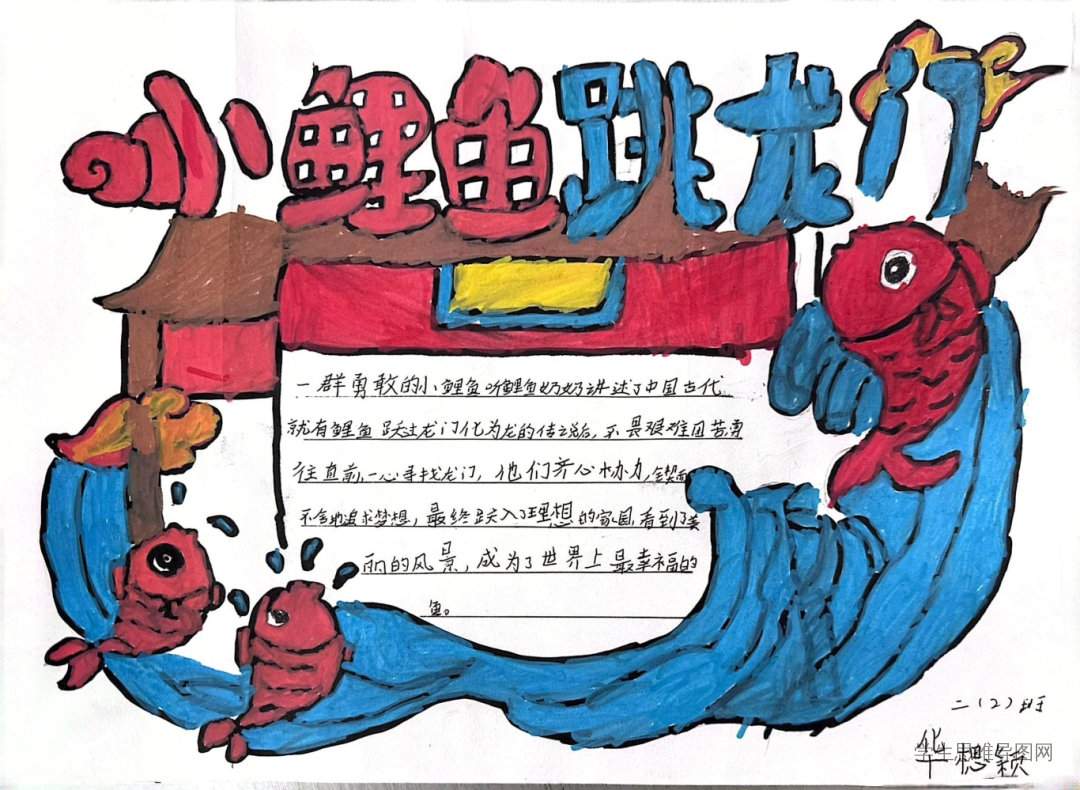 小鲤鱼跳龙门
一群勇敢的小鲤鱼听鲤鱼奶奶讲述了中国古代
就有鲤鱼跃过龙门化为龙的传说后，不畏艰难困苦勇
往直前，一心寻找龙门，他们齐心协力，锲而
不舍地追求梦想，最终跃入了理想的家园，看到了美
丽的风景，成为了世界上最幸福的
鱼。
二（2）班
华思颖
学生思维导图网